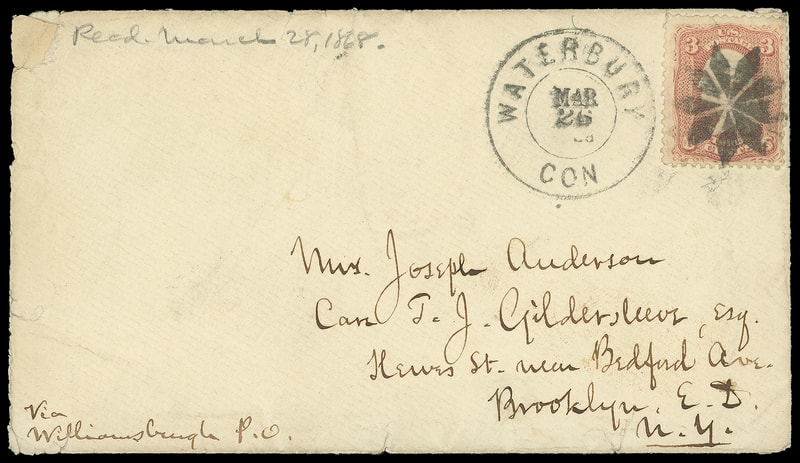 Recd. March 28, 1868.
WATERBURY
MAR
26
CON
U.S.
3 3
Mrs. Joseph Anderson
Care T. J. Gildersleeve, Esq.
Hewes St. near Bedford Ave.
Brooklyn, E. D.
N. Y.
Via
Williamsburgh P. O.